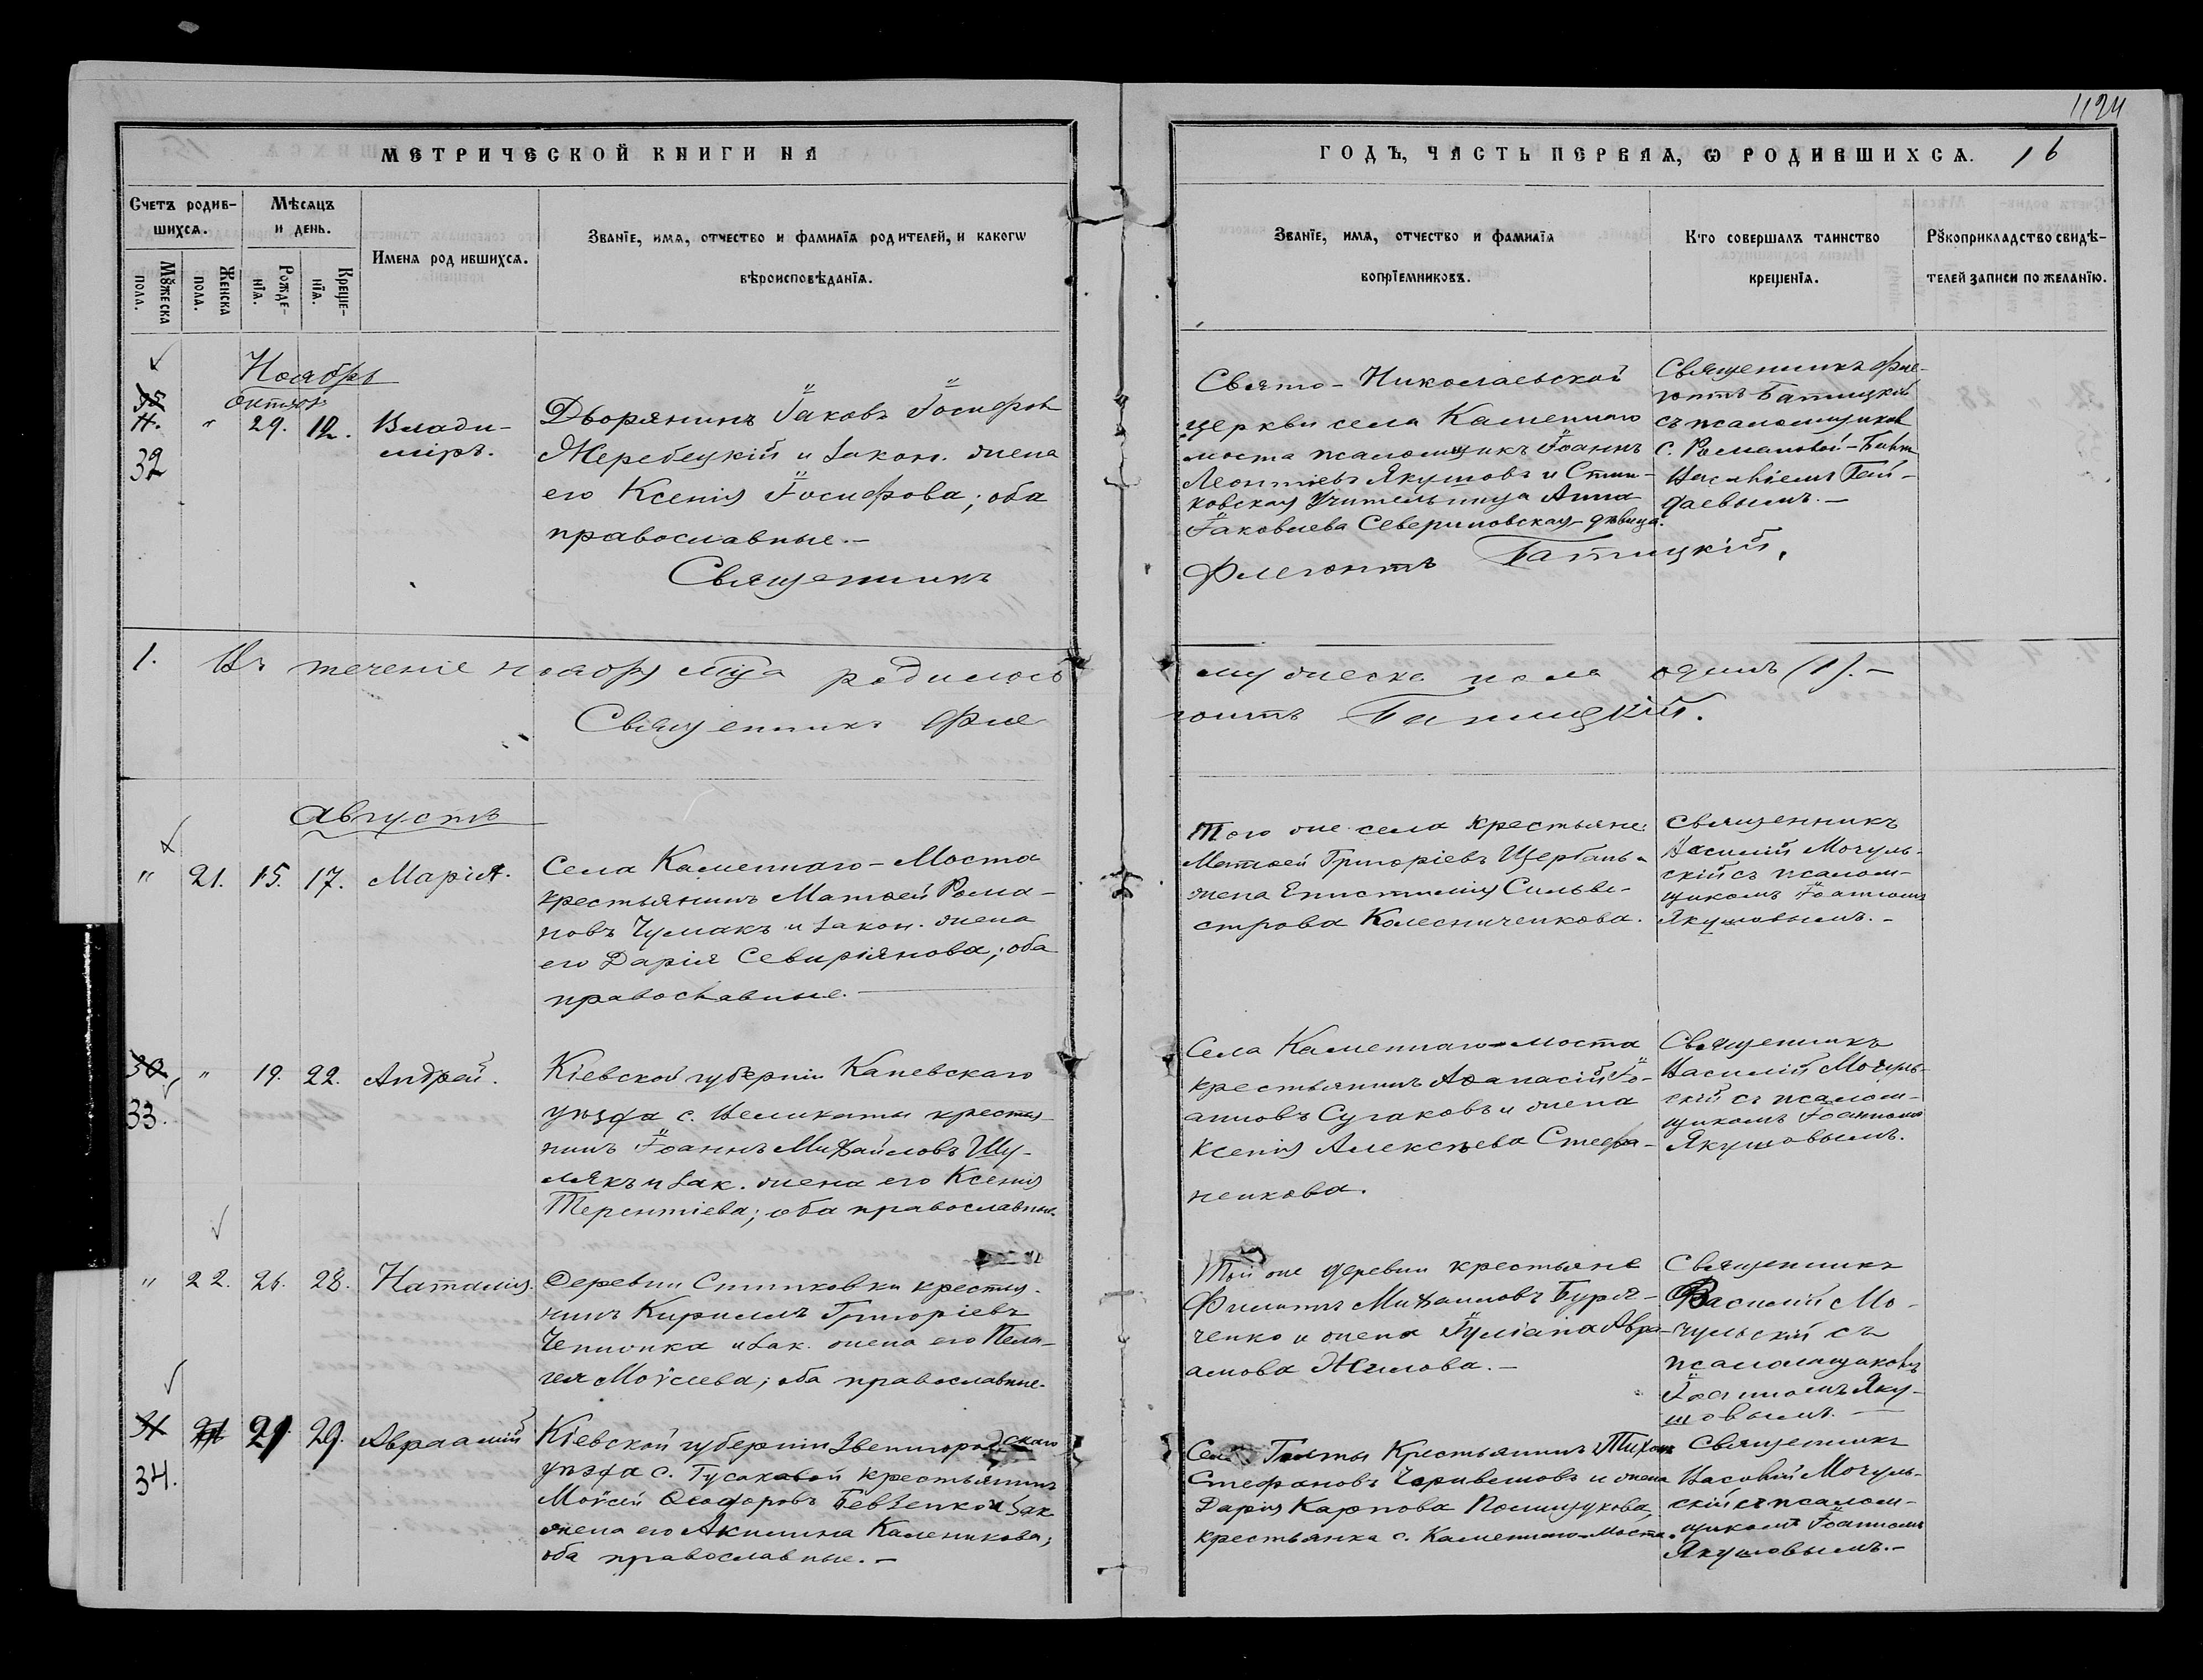 1124
МЕТРИЧЕСКОЙ КНИГИ НА
ГОДЪ, ЧАСТЬ ПЕРВАѦ, Ѡ РОДИВШИХСѦ. 16
Счетъ родив-
шихсѧ.
Мѣсѧцъ
и день.
Мꙋжеска
пола.
Женска
пола.
Рожде-
нїѧ.
Креще-
нїѧ.
Имена родившихсѧ.
Званїе, имѧ, отчество и фамилїѧ родителей, и какогѡ
вѣроисповѣданїѧ.
Званїе, имѧ, отчество и фамилїѧ
воспрїемниковъ.
Кто совершалъ таинство
крещенїѧ.
Рꙋкоприкладство свидѣ-
телей записи по желанїю.
Ноябрь
Октяб.
32
"
29.
12.
Влади-
міръ.
Дворянинъ Іаковъ Іосифов
Жеребецкій и закон. жена
его Ксенія Іосифова; оба
православные.-
Священникъ
Свято-Николаевской
церкви села Каменнаго
моста псаломщикъ Іоаннъ
Леонтіевъ Якушовъ и Стпи-
ковская Учительница Анна
Іаковлева Севериновская-дѣвица.
Флегонтъ Батицкій.
Священникъ Фле-
гонтъ Батицкій
съ псаломщиком
с. Романовой-Балки
Василіемъ Гай-
даевымъ.-
1. Въ теченіе ноября м-ца родилось
мужеска пола одинъ (1).-
Священникъ Фле
гонтъ Батицкій.
Августъ
" 21. 15. 17. Марія.
Села Каменнаго-Моста
крестьянинъ Матѳей Рома-
новъ Чумакъ и закон. жена
его Дарія Севиріянова; оба
православные.-
Того же села крестьяне
Матѳей Григоріевъ Щербань и
жена Епистимія Сильве-
строва Колесниченкова.
Священникъ
Василій Мочуль-
скій съ псалом-
щикомъ Іоанномъ
Якушовымъ.-
30
33.
" 19. 22. Андрей.
Кіевской губерніи Каневскаго
уѣзда с. крестья-
нинъ Іоаннъ Михайловъ Шу-
лякъ и зак. жена его Ксенія
Терентіева; оба православные.
Села Каменнаго-моста
крестьянинъ Аѳанасій Іо-
анновъ Сугаковъ и жена
Ксенія Алексѣева Стефа-
ненкова.
Священникъ
Василій Мочуль-
скій съ псалом-
щикомъ Іоанномъ
Якушовымъ.
" 22. 26. 28. Наталія.
Деревни Стпиковки крестья-
нинъ Кириллъ Григоріевъ
и зак. жена его Пела-
гея Моѵсіева; оба православные.
Той же деревни крестьяне
Филиппъ Михаиловъ Буря-
ченко и жена Іуліана Авра-
амова Жилова.-
Священникъ
Василій Мо-
чульскій съ
псаломщикомъ
Іоанномъ Яку-
шовымъ.-
31
34.
29. 29. Авраамій
Кіевской губерніи Звенигородскаго
уѣзда с. Гусаковой крестьянинъ
Моѵсей Ѳеодоровъ Бевзенко и зак
жена его Акилина Каленикова;
оба православные.-
Села Голты Крестьянинъ Тихон
Стефановъ и жена
Дарія Карпова Полищукова,
крестьянка с. Каменнаго-Моста.
Священникъ
Василій Мочуль-
скій съ псалом-
щикомъ Іоанномъ
Якушовымъ.-